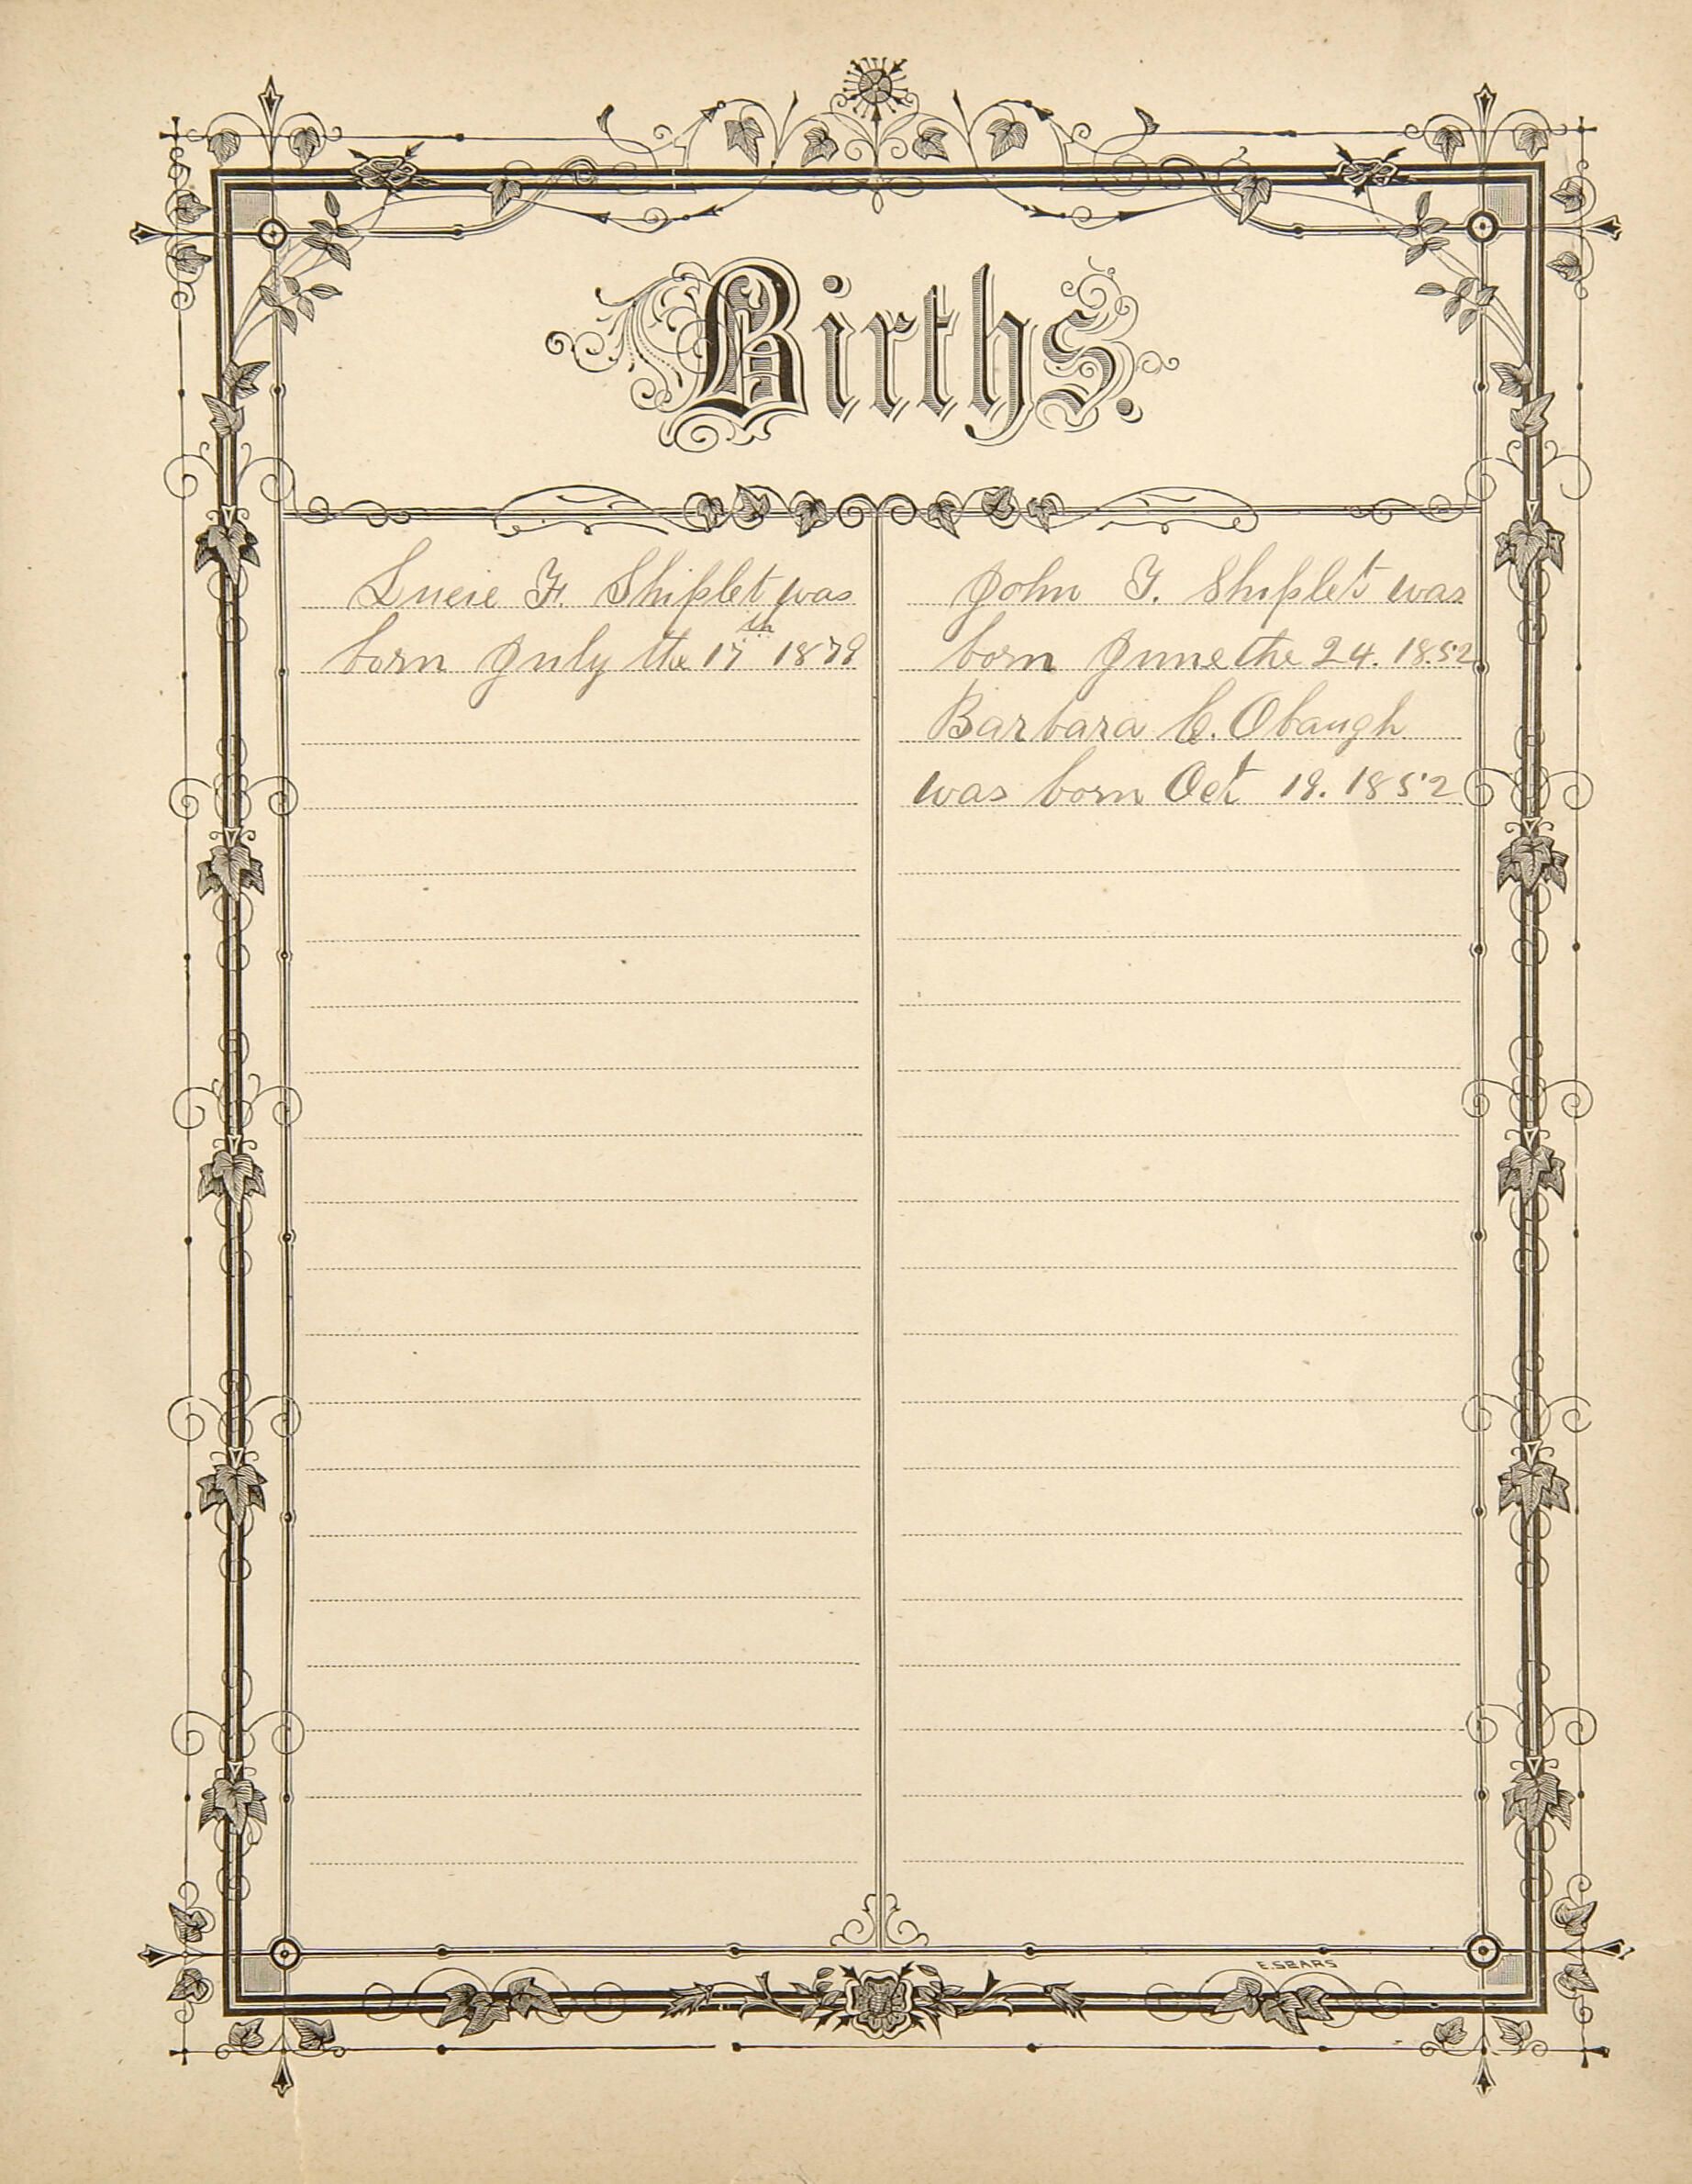 Births.
Lucie F. Shiplet was
born July the 17th 1879
John F. Shiplet was
born June the 24. 1852
Barbara C. Obaugh
was born Oct 19. 1852
E. SEARS